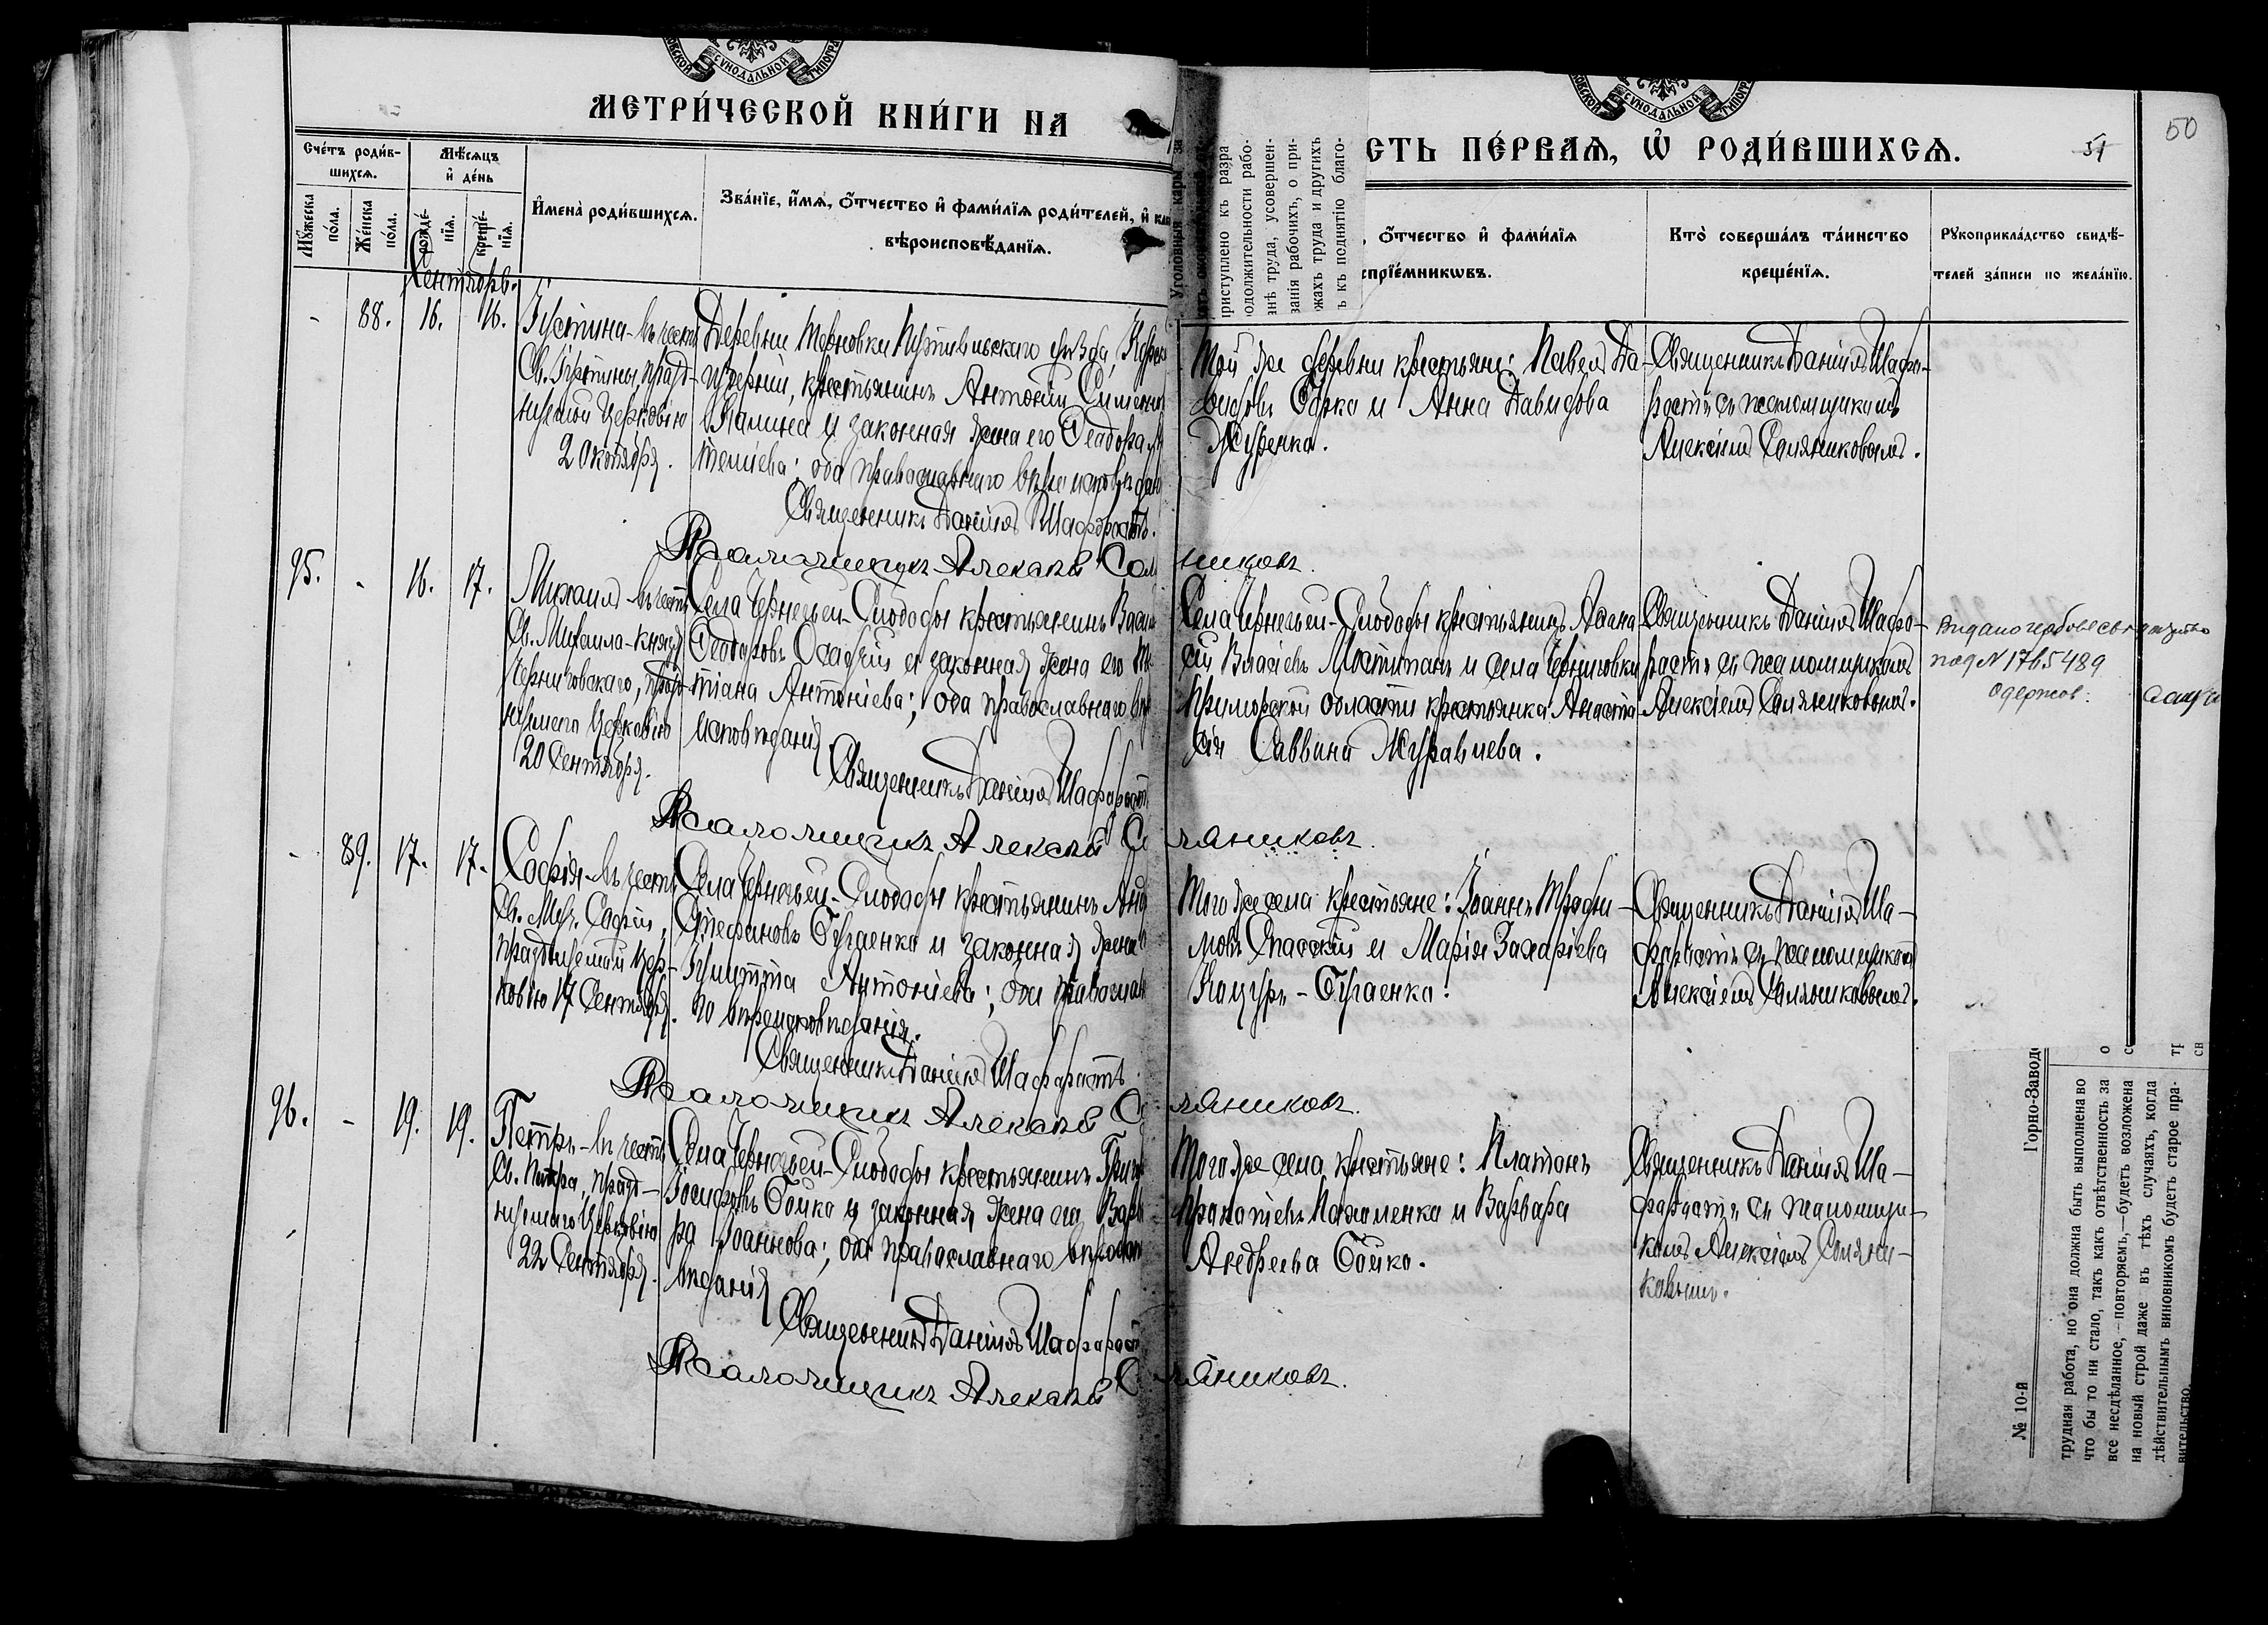 МЕТРИ́ЧЕСКОЙ КНИ́ГИ НА
СТЬ ПЕ́РВАѦ, Ѿ РОДИ́ВШИХСѦ.
50
51
Сче́тъ роди́в-
шихсѧ.
Мѣ́сѧцъ
и҆ де́нь
Мꙋ́жеска
по́ла.
Же́нска
по́ла.
рожде́-
нїѧ.
креще́-
нїѧ.
И҆мена̀ роди́вшихсѧ.
Зва́нїе, и҆́мѧ, ѻ҆́тчество и҆ фами́лїѧ роди́телей, и҆ как
вѣроисповѣ́данїѧ.
, ѻ҆́тчество и҆ фами́лїѧ
спрїе́мникѡвъ.
Кто̀ соверша́лъ та́инство
креще́нїѧ.
Рꙋкоприкла́дство свидѣ́-
телей за́писи по жела́нїю.
Сентябрь.
- 88. 16. 16.
Іустина - въ честь
Св. Іустины, празд-
нуемой Церковію
2 Октября.
Деревни Терновки Путивльскаго уѣзда, Курск
губерніи, крестьянинъ Антоній Симеоно
Калина и законная жена его Ѳеодора
; оба православнаго вѣроисповѣдан
Священникъ Даніилъ Шафорость.
Псаломщикъ Алексѣй Соляниковъ.
Той же деревни крестьяне: Павелъ Да-
видовъ и Анна Давидова
Журенка.
Священникъ Даніилъ Шафо-
рость съ псаломщикомъ
Алексіемъ Соляниковымъ.
95. - 16. 17.
Михаилъ - въ честь
Св. Михаила - князя
Черниговскаго, празд-
нуемаго Церковію
20 Сентября.
Села Чернечьей-Слободы крестьянинъ Васил
Ѳеодоровъ Осадчій и законная жена его Та
тіана Антоніева; оба православнаго вѣро
исповѣданія.
Священникъ Даніилъ Шафорост
Псаломщикъ Алексѣй Соляниковъ.
Села Чернечьей-Слободы крестьянинъ Аѳана
сій Власіевъ и села Черниговки
Приморской области крестьянка Анаста
сія Саввина Журавлева.
Священникъ Даніилъ Шафо-
рость съ псаломщикомъ
Алексіемъ Соляниковымъ.
Видано гербове свидецтво
под N 1765489
Одержав.
- 89. 17. 17.
Софія - въ честь
Св. Муч. Софіи,
празднуемой Цер-
ковію 17 Сентября.
Села Чернечьей-Слободы крестьянинъ Анд
Стефановъ Бугаенко и законная жена
Іулитта Антоніева; оба православ
го вѣроисповѣданія.
Священникъ Даніилъ Шафорость
Псаломщикъ Алексѣй Соляниковъ.
Того же села крестьяне: Іоаннъ Трофи-
мовъ Спасскій и Марія Захаріева
Коцуръ - Бугаенко.
Священникъ Даніилъ Ша-
форость съ псаломщикомъ
Алексіемъ Соляниковымъ.
96. - 19. 19.
Петръ - въ честь
Св. Петра, празд-
нуемаго Церковію
22 Сентября.
Села Чернечьей-Слободы крестьянинъ Григо
Іосифовъ Бойко и законная жена его Варва
ра Іоаннова; оба православнаго вѣроиспо
вѣданія
Священникъ Даніилъ Шафорост
Псаломщикъ Алексѣй Соляниковъ.
Того же села крестьяне: Платонъ
Пархоменко и Варвара
Андреева Бойко.
Священникъ Даніилъ Ша-
форость съ псаломщи-
комъ Алексіемъ Соляни-
ковымъ.
Уголовныя кары за
риступлено къ разра
одолжительности рабо-
нѣ труда, усовершен-
занія рабочихъ, о при-
жахъ труда и другихъ
ъ къ поднятію благо-
№ 10-й
Горно-Заводс
трудная работа, но она должна быть выполнена во
что бы то ни стало, такъ какъ отвѣтственность за
все несдѣланное,—повторяемъ,—будетъ возложена
на новый строй даже въ тѣхъ случаяхъ, когда
дѣйствительнымъ виновникомъ будетъ старое пра-
вительство.